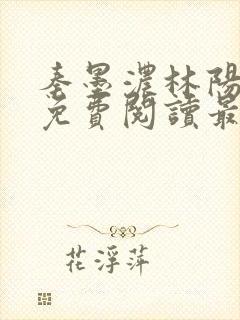 秦墨濃林陽
免費閱讀最
花浮萍